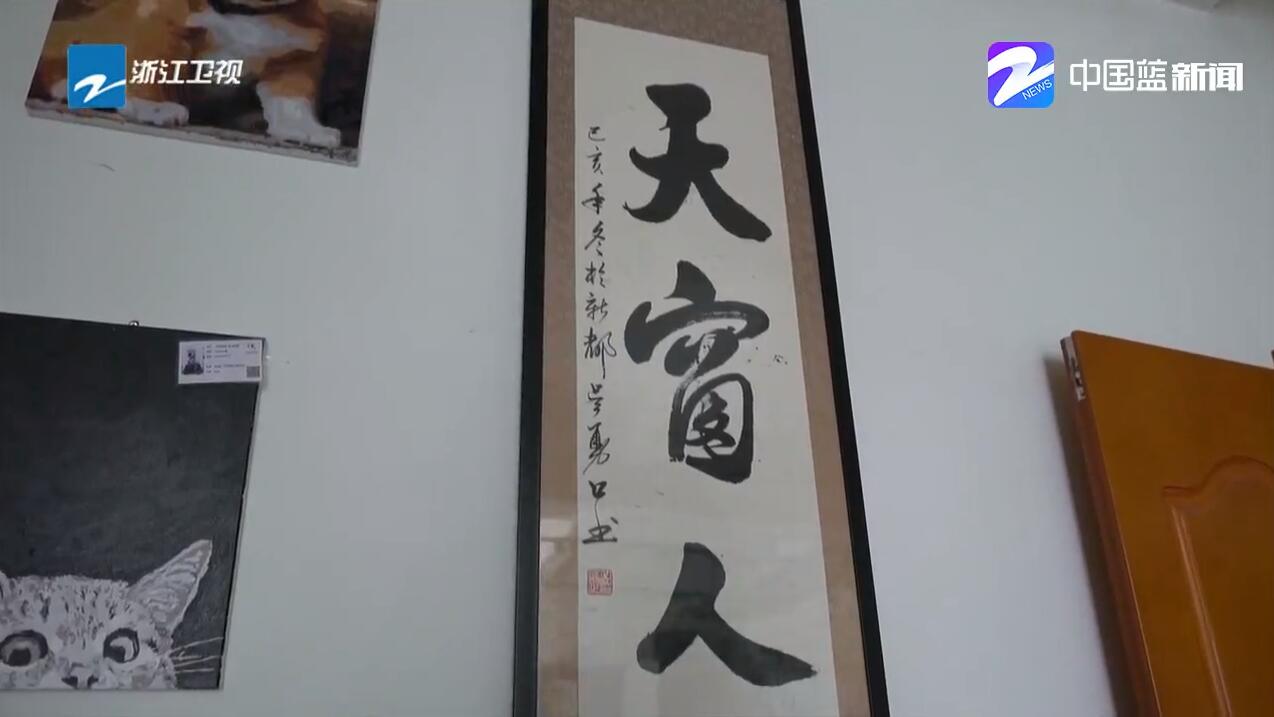 浙江卫视
NEWS
中国蓝新闻
天窗人
己亥年冬於新都吴勇口书